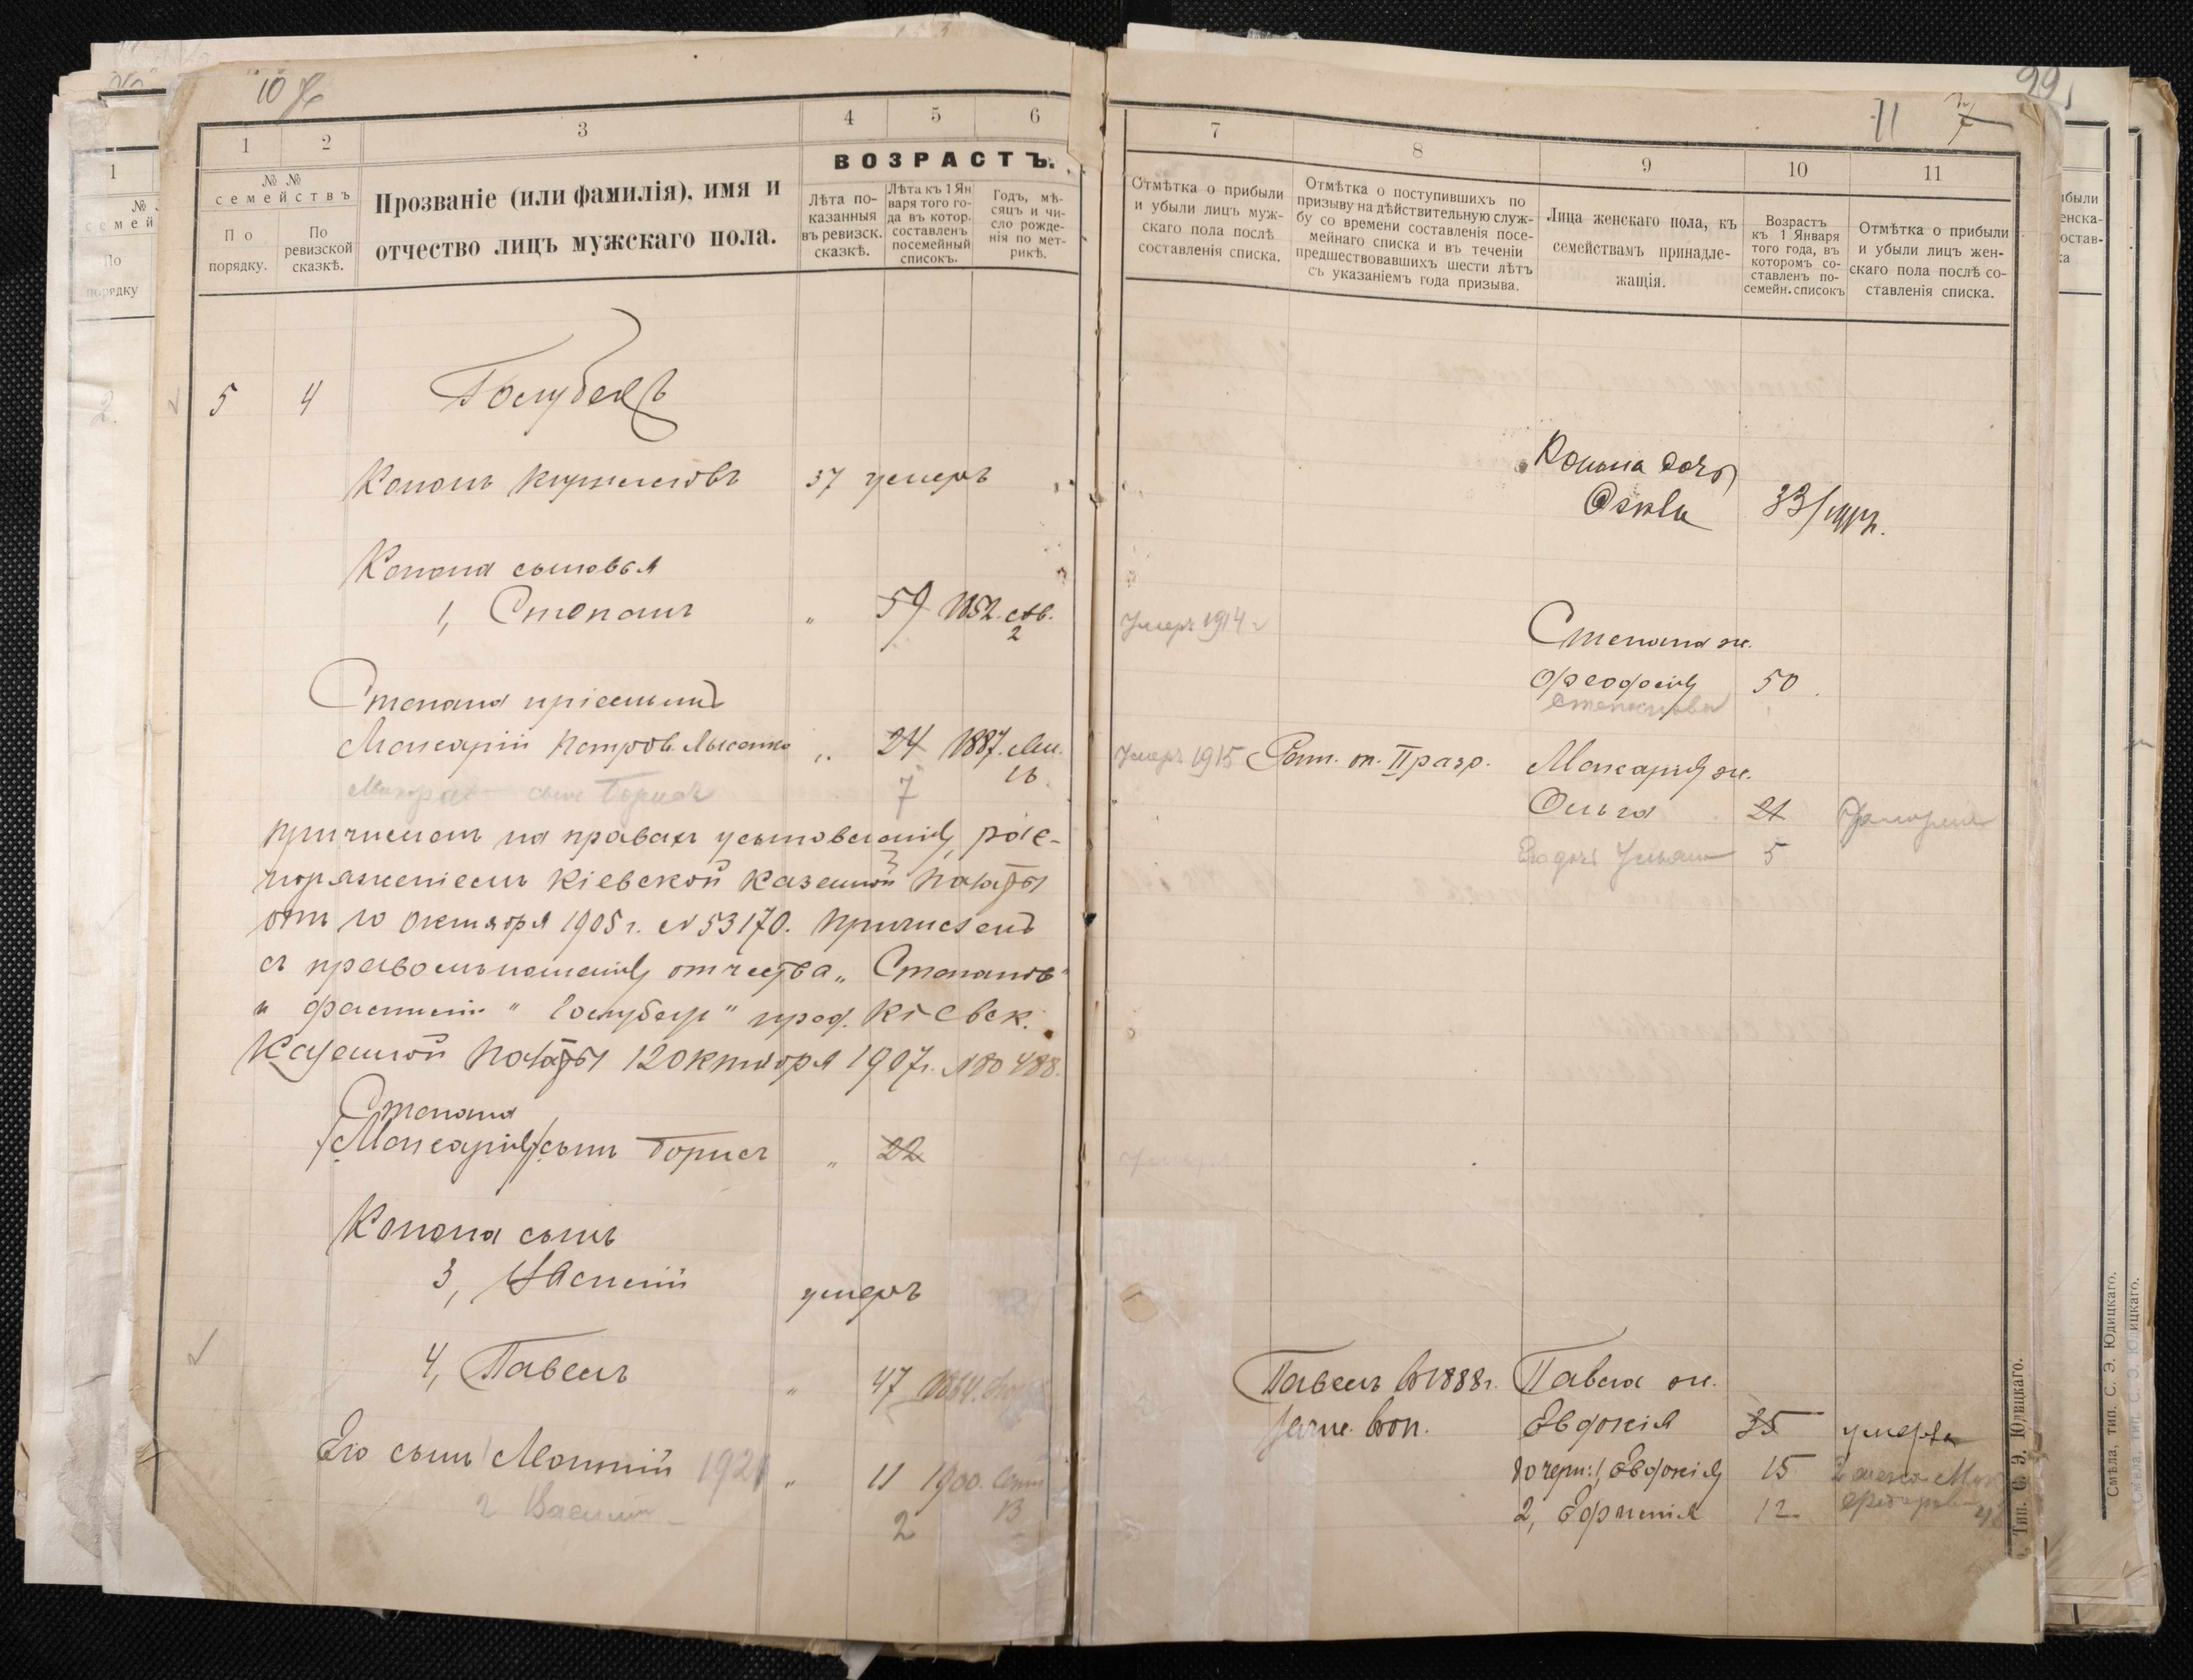 10
1
2
3
4
5
6
№ №
семействъ
По
порядку.
По
ревизской
сказкѣ.
Прозваніе (или фамилія), имя и
отчество лицъ мужскаго пола.
ВОЗРАСТЪ.
Лѣта по-
казанныя
въ ревизск.
сказкѣ.
Лѣта къ 1 Ян
варя того го-
да въ котор.
составленъ
посемейный
списокъ.
Годъ, мѣ-
сяцъ и чи-
сло рожде-
нія по мет-
рикѣ.
5 4 Голубецъ
Кононъ 37 умеръ
Конона сыновья
1, Степанъ " 59 1852. 2
Степана пріемышъ
Макарій Петровъ Лысенко " 24 1887. 16.
сынъ Борисъ 7
причисленъ на правахъ усыновленія, рас-
поряженіемъ Кіевской Казенной Палаты
отъ 10 октября 1905 г. № 53170. Причисленъ
съ правомъ ношенія отчества „Степановъ"
и фамиліи "Голубецъ" пред. Кіевск.
Казенной Палаты 12 октября 1907 г. № 80488.
Степана
/Макарія/ сынъ Борисъ " 22
Конона сынъ
3, Василій умеръ
4, Павелъ " 47 1864.
Его сынъ 1 1921 " 11 1900. Сент 13
2 Василій 2
99
11
7
8
9
10
11
Отмѣтка о прибыли
и убыли лицъ муж-
скаго пола послѣ
составленія списка.
Отмѣтка о поступившихъ по
призыву на дѣйствительную служ-
бу со времени составленія посе-
мейнаго списка и въ теченіи
предшествовавшихъ шести лѣтъ
съ указаніемъ года призыва.
Лица женскаго пола, къ
семействамъ принадле-
жащія.
Возрастъ
къ 1 Января
того года, въ
которомъ со-
ставленъ по-
семейн. списокъ
Отмѣтка о прибыли
и убыли лицъ жен-
скаго пола послѣ со-
ставленія списка.
Конона дочь
33
Умеръ 1914 г Степана ж.
Феодосія 50
Степанова
Умеръ 1915 Рат. оп. II разр. Макарія ж.
Ольга 21
Его дочь Ульяна 5
Умеръ
Павелъ въ 1888 г. Павла ж.
зачис. въ оп. Евдокія 35 умерла
дочери: 1, Евдокія 15
2, Ефимія 12
Тип. С. Э. Юдицкаго.
1
семей
По
порядку
2.
были
енска-
остав-
ка
Смѣла, тип. С. Э. Юдицкаго.
Смѣла, тип. С. Э. Юдицкаго.